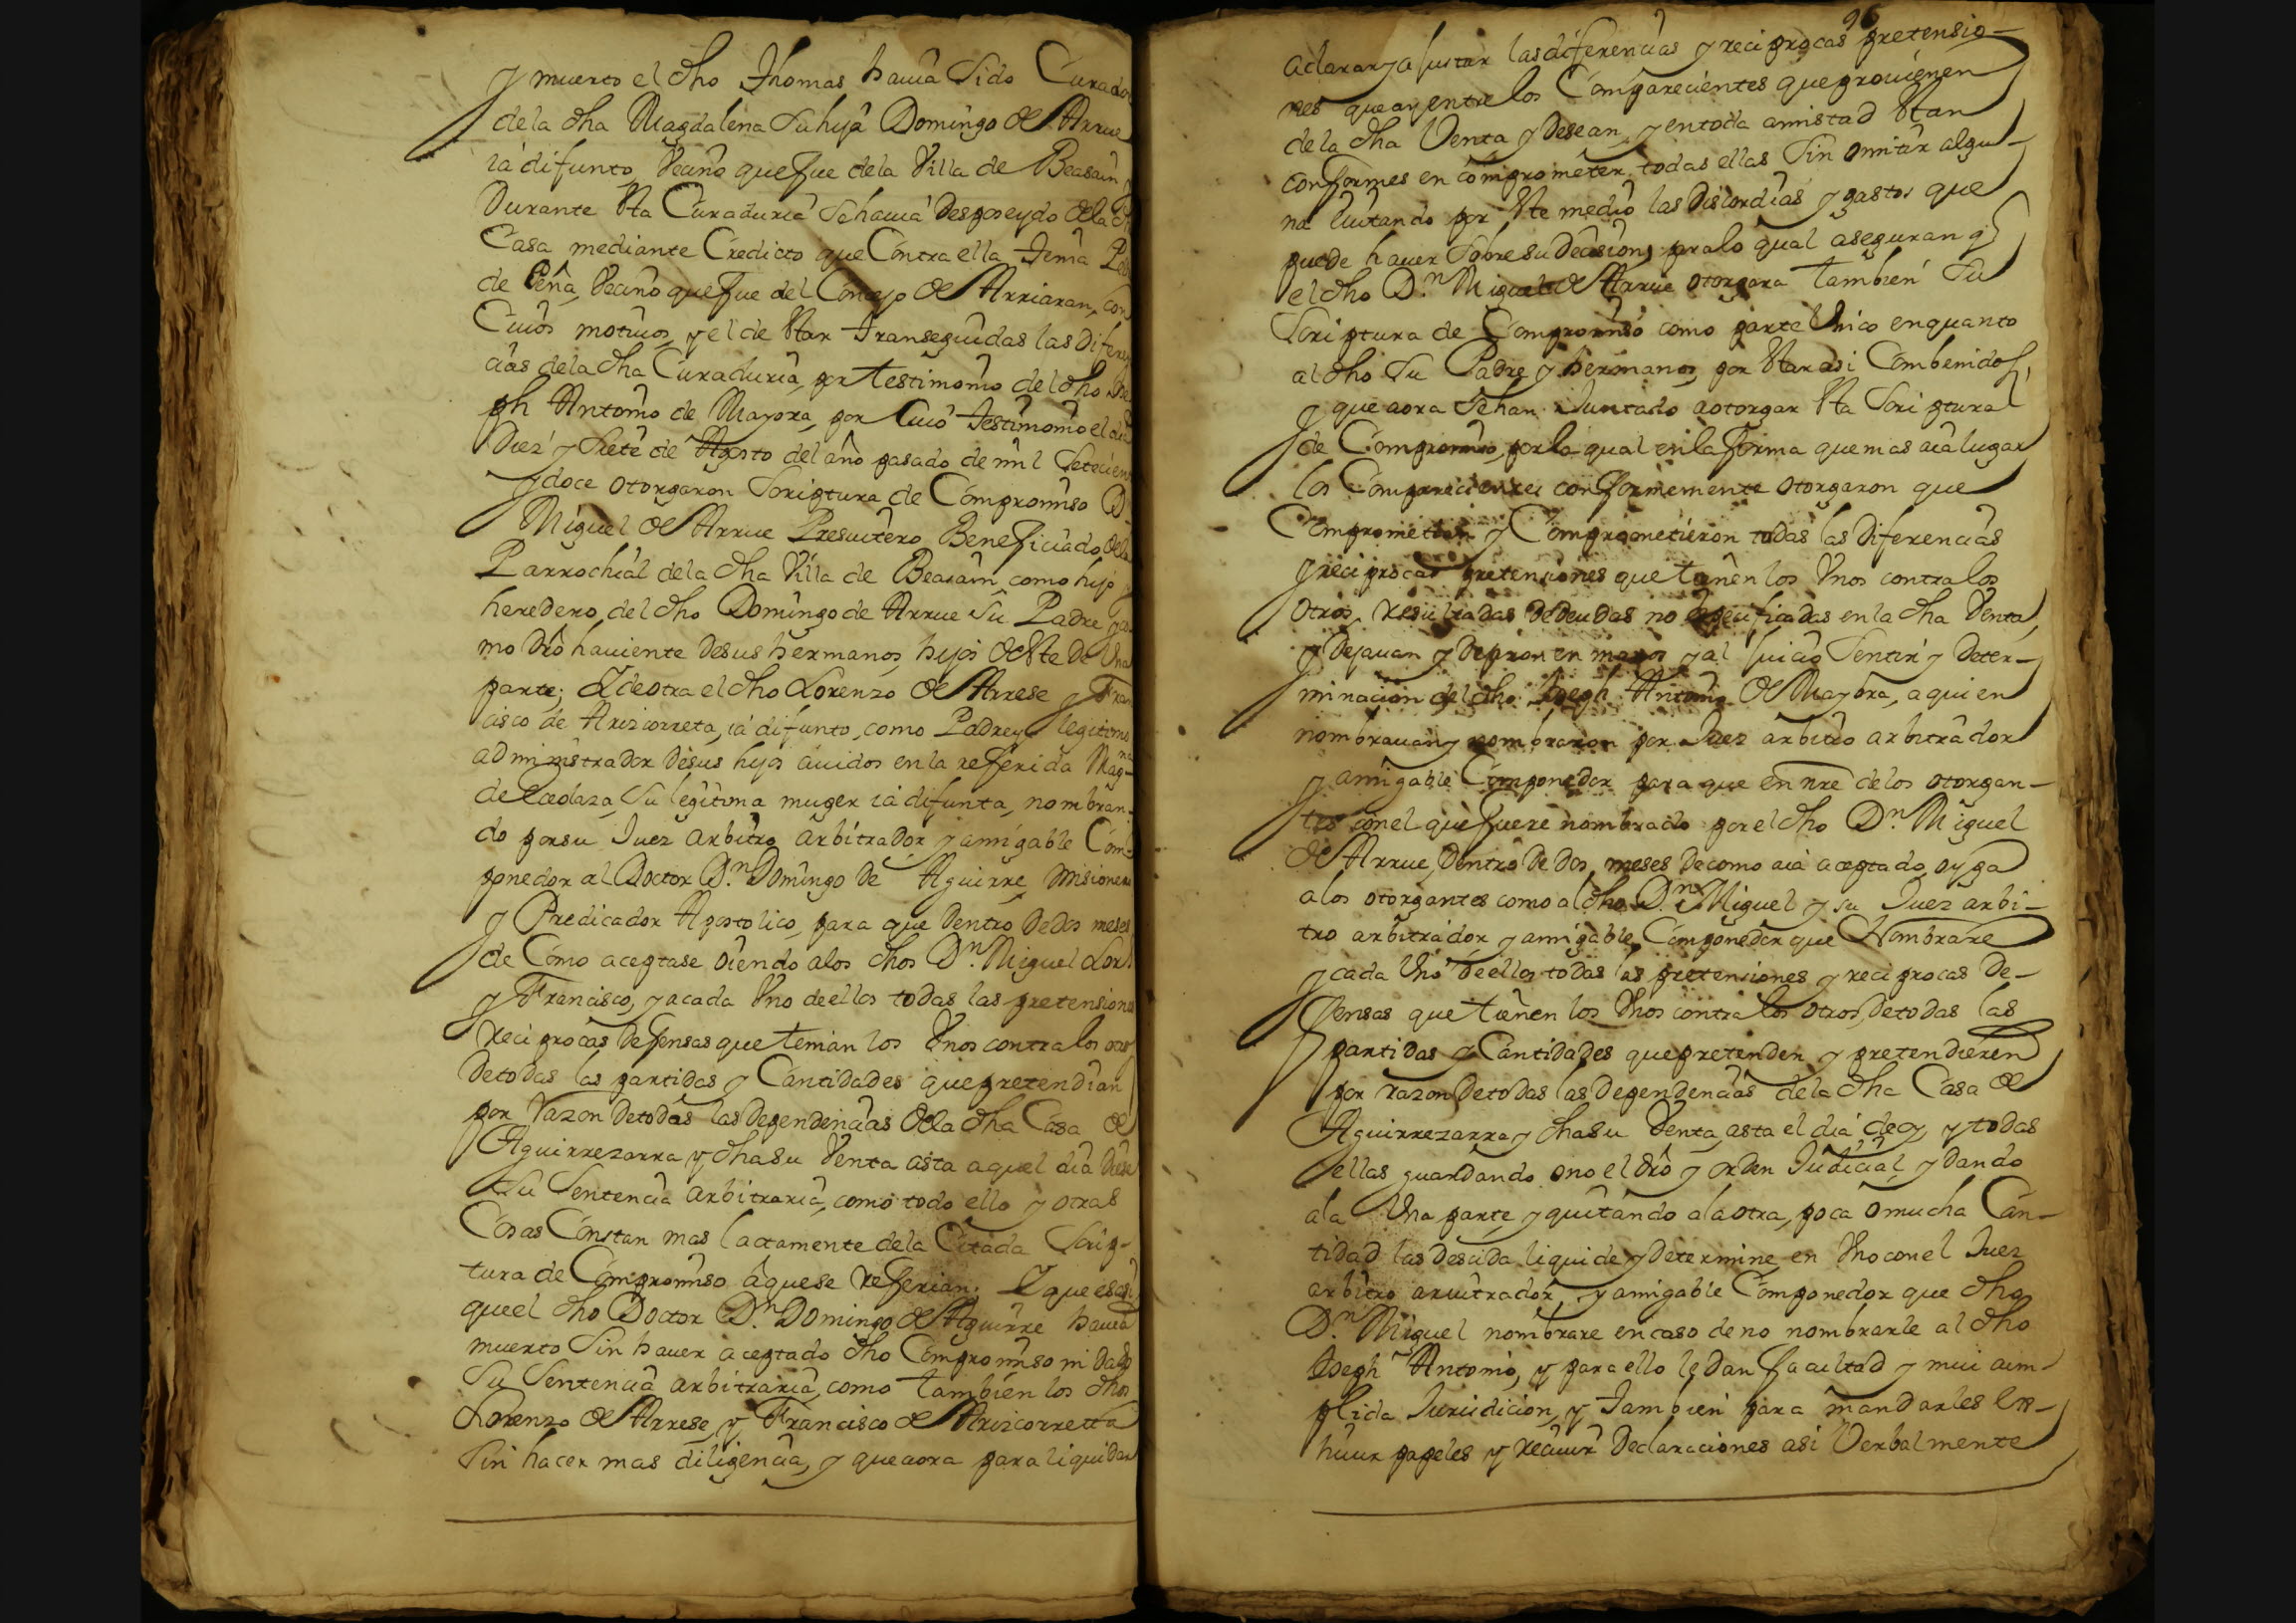 y muerto el dho Thomas havia sido Curador
de la dha Magdalena su hija Domingo de Arrue
ia difunto, vecino que fue de la Villa de Beasain, y
Durante esta Curaduria se havia desposeydo de la dha
Casa mediante Credicto que Contra ella tenia
de Peña, vecino que fue del Concejo de Arriaran, con
Cuios motivos, y el de estar transeguidas las diferen
cias de la dha Curaduria, por testimonio del dho Jose
ph Antonio de Mayora, por Cuio testimonio el dia
Diez y siete de Agosto del año pasado de mil setecien
y doce otorgaron Scriptura de Compromiso D.
Miguel de Arrue Presvitero Beneficiado de la
Parrochial de la dha Villa de Beasain, como hijo y
heredero del dho Domingo de Arrue su Padre y co
mo dro haviente de sus hermanos, hijos de este de Una
parte; Y de otra el dho Lorenzo de Arrese y Fran
cisco de Arizcorreta, ia difunto, como Padre y legitimo
administrador de sus hijos avidos en la referida Mag.na
de Loedaza, su legitima muger ia difunta, nombran-
do por su Juez arbitro arbitrador y amigable Com
ponedor al Doctor D.n Domingo de Aguirre, Misionero
y Predicador Apostolico, para que dentro de dos meses
de Como aceptase oiendo a los dhos D.n Miguel Lor.
y Francisco, y a cada Uno de ellos todas las pretensiones
reciprocas defensas que tenian los Unos contra los otros
de todas las partidas y Cantidades que pretendian
por razon de todas las dependencias de la dha Casa de
Aguirrezarra y dha su Venta asta aquel dia diese
su Sentencia arbitraria, como todo ello y otras
Cosas Constan mas lactamente de la Citada Scrip-
tura de Compromiso a que se referian; Y que es asi
que el dho Doctor D.n Domingo de Aguirre havia
muerto sin haver aceptado dho Compromiso ni dado
su Sentencia arbitraria, como tambien los dhos
Lorenzo de Arrese, y Francisco de Arizcorretta
sin hacer mas diligencia, y que aora para liquidar
96
aclarar y ajustar las diferencias y reciprocas pretensio-
nes que ay entre los Comparecientes que provienen
de la dha Venta y desean, y en toda amistad estan
conformes en comprometer todas ellas sin omitir algu-
na evitando por este medio las discordias y gastos que
puede haver sobre su decision; pra lo qual aseguran q
el dho D.n Miguel de Arrue otorgara tambien su
Scriptura de Compromiso como parte Unico en quanto
al dho su Padre y hermanos, por estar asi Combenidos,
y que aora se han Juntado a otorgar esta Scriptura
de Compromiso, por la qual en la forma que mas aia lugar
los Comparecientes conformemente otorgaron que
Comprometian y Comprometieron todas las diferencias
y reciprocas pretensiones que tienen los Unos contra los
otros, resultadas de deudas no especificadas en la dha Venta,
y dejavan y dejaron en manos y al juicio sentir y deter-
minacion del dho Joseph Antonio de Mayora, a quien
nombravan y nombraron por Juez arbitro arbitrador
y amigable Componedor para que en nre de los otorgan-
tes con el que fuere nombrado por el dho D.n Miguel
de Arrue, dentro de dos meses de como aia aceptado, oyga
a los otorgantes como al dho D.n Miguel y su Juez arbi-
tro arbitrador y amigable Componedor que Nombrare
y cada Uno de ellos todas las pretensiones y reciprocas de-
fensas que tienen los Unos contra los otros, de todas las
partidas y Cantidades que pretenden y pretendieren
por razon de todas las dependencias de la dha Casa de
Aguirrezarra y dha su Venta, asta el dia de oy, y todas
ellas guardando o no el dro y orden Judicial, y dando
a la Una parte y quitando a la otra, poca o mucha Can-
tidad las descida liquide y determine en Uno con el Juez
arbitro arvitrador, y amigable Componedor que dho
D.n Miguel nombrare en caso de no nombrarle al dho
Joseph Antonio, y para ello le dan facultad y mui cum-
plida Jurisdicion, y tambien para mandarles ex-
hivir papeles y recivir Declaraciones asi Verbalmente